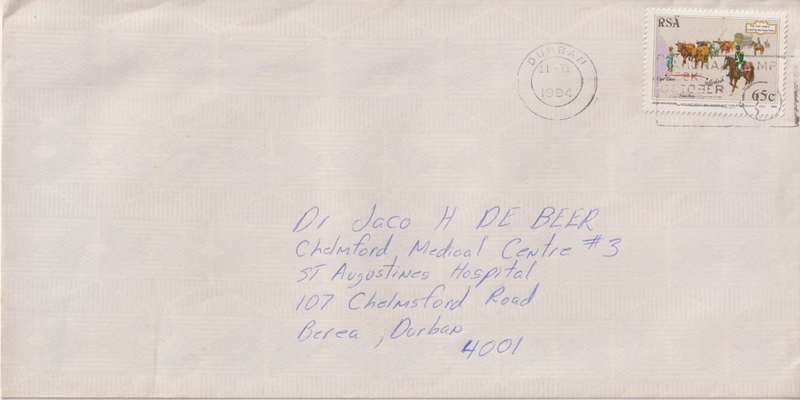 RSA
65c
DURBAN
1994
OCTOBER
Dr Jaco H DE BEER
Chelmford Medical Centre #3
ST Augustines Hospital
107 Chelmsford Road
Berea, Durban
4001